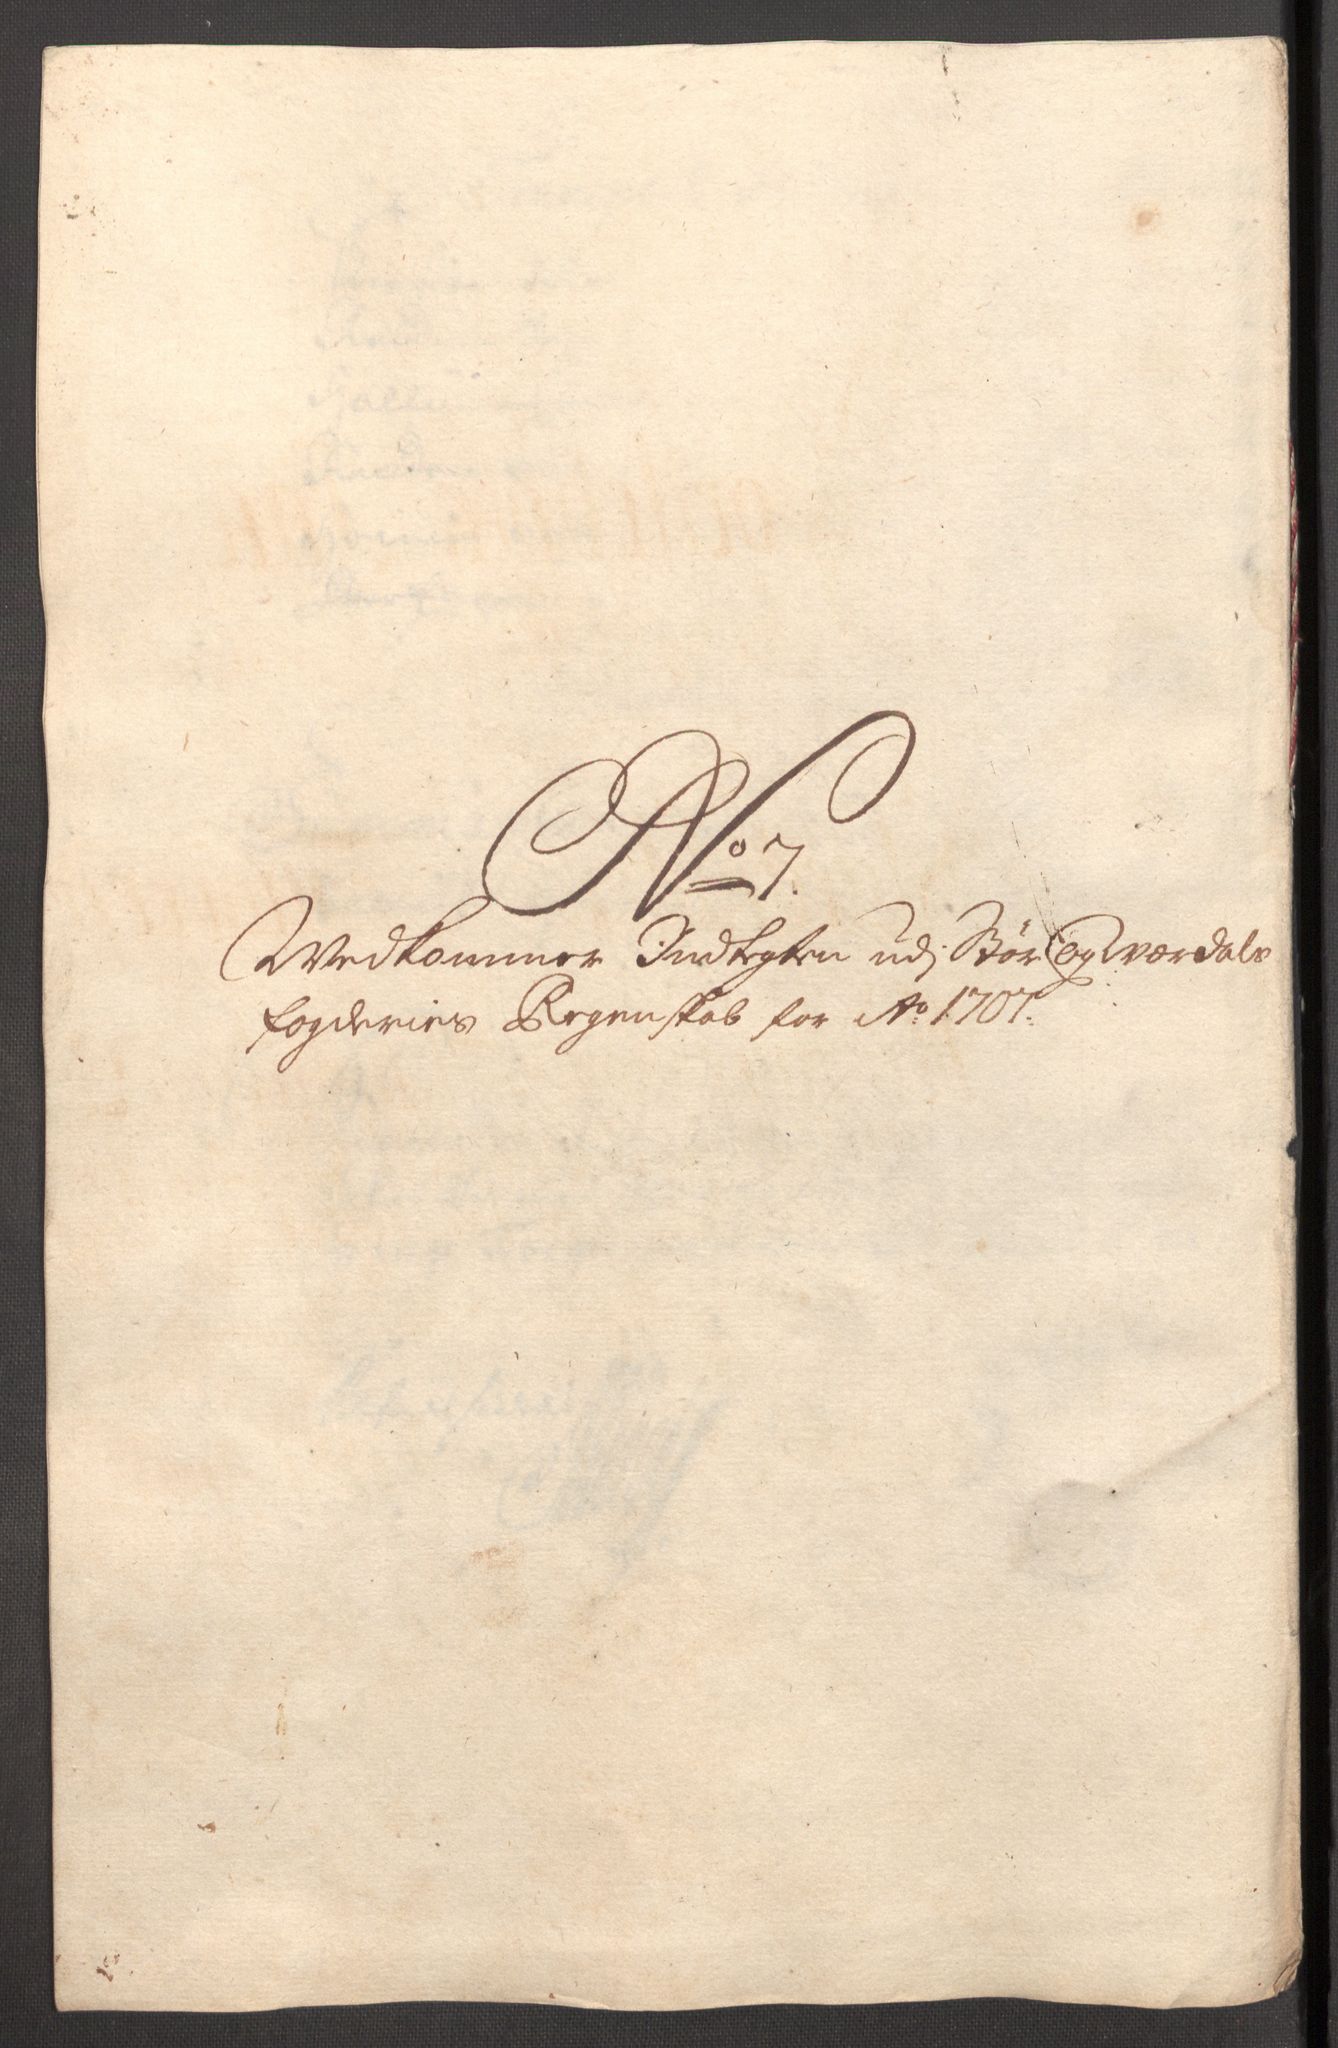 No 7.
Vedkommer Indtegten udj Stör og Værdals
fogderies Regenskab for Ao 1707.